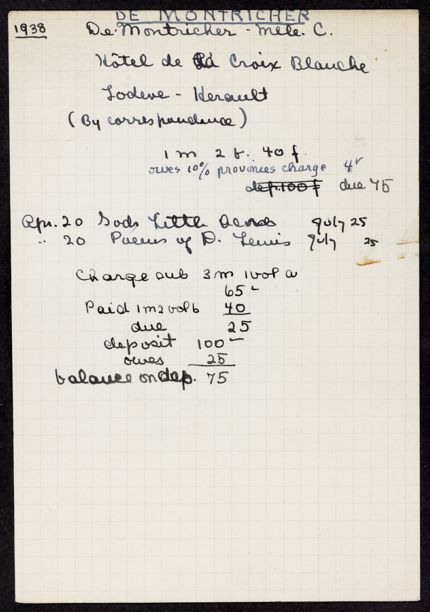 DE MONTRICHER
1938
De Montricher - Mlle. C.
Hôtel de la Croix Blanche
Lodeve - Herault
(By correspondence)
1 m 2 b. 40 f.
owes 10% provinces charge 4
dep. 100 f due 75
Apr. 20 Gods Little Acres July 25
" 20 Poems of D. Lewis July 25
Charge sub 3 m 1 vol a
65
Paid 1 m 2 vol b 40
due 25
deposit 100
owes 25
balance on dep. 75